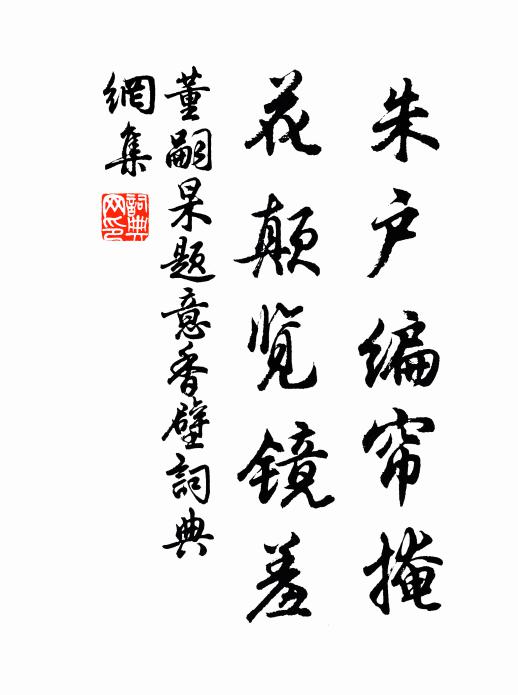 朱户编帘掩
花颠览镜羞
董嗣杲题意香壁詞典
網集
詞典网印